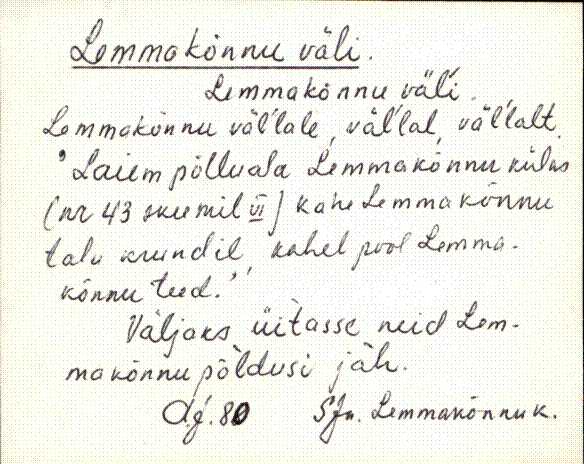 Lemmakõnnu väli.
Lemmakõnnu väĺi.
Lemmakõnnu väĺlale, väĺlal, väĺlalt.
'Laiem põlluala Lemmakõnnu külas
(nr 43 skeemil VI) kahe Lemmakõnnu
talu krundil, kahel pool Lemma-
kõnnu teed.'
Väljaks üitasse neid Lem-
makõnnu põldusi jäh.
SJn. Lemmakõnnu k.